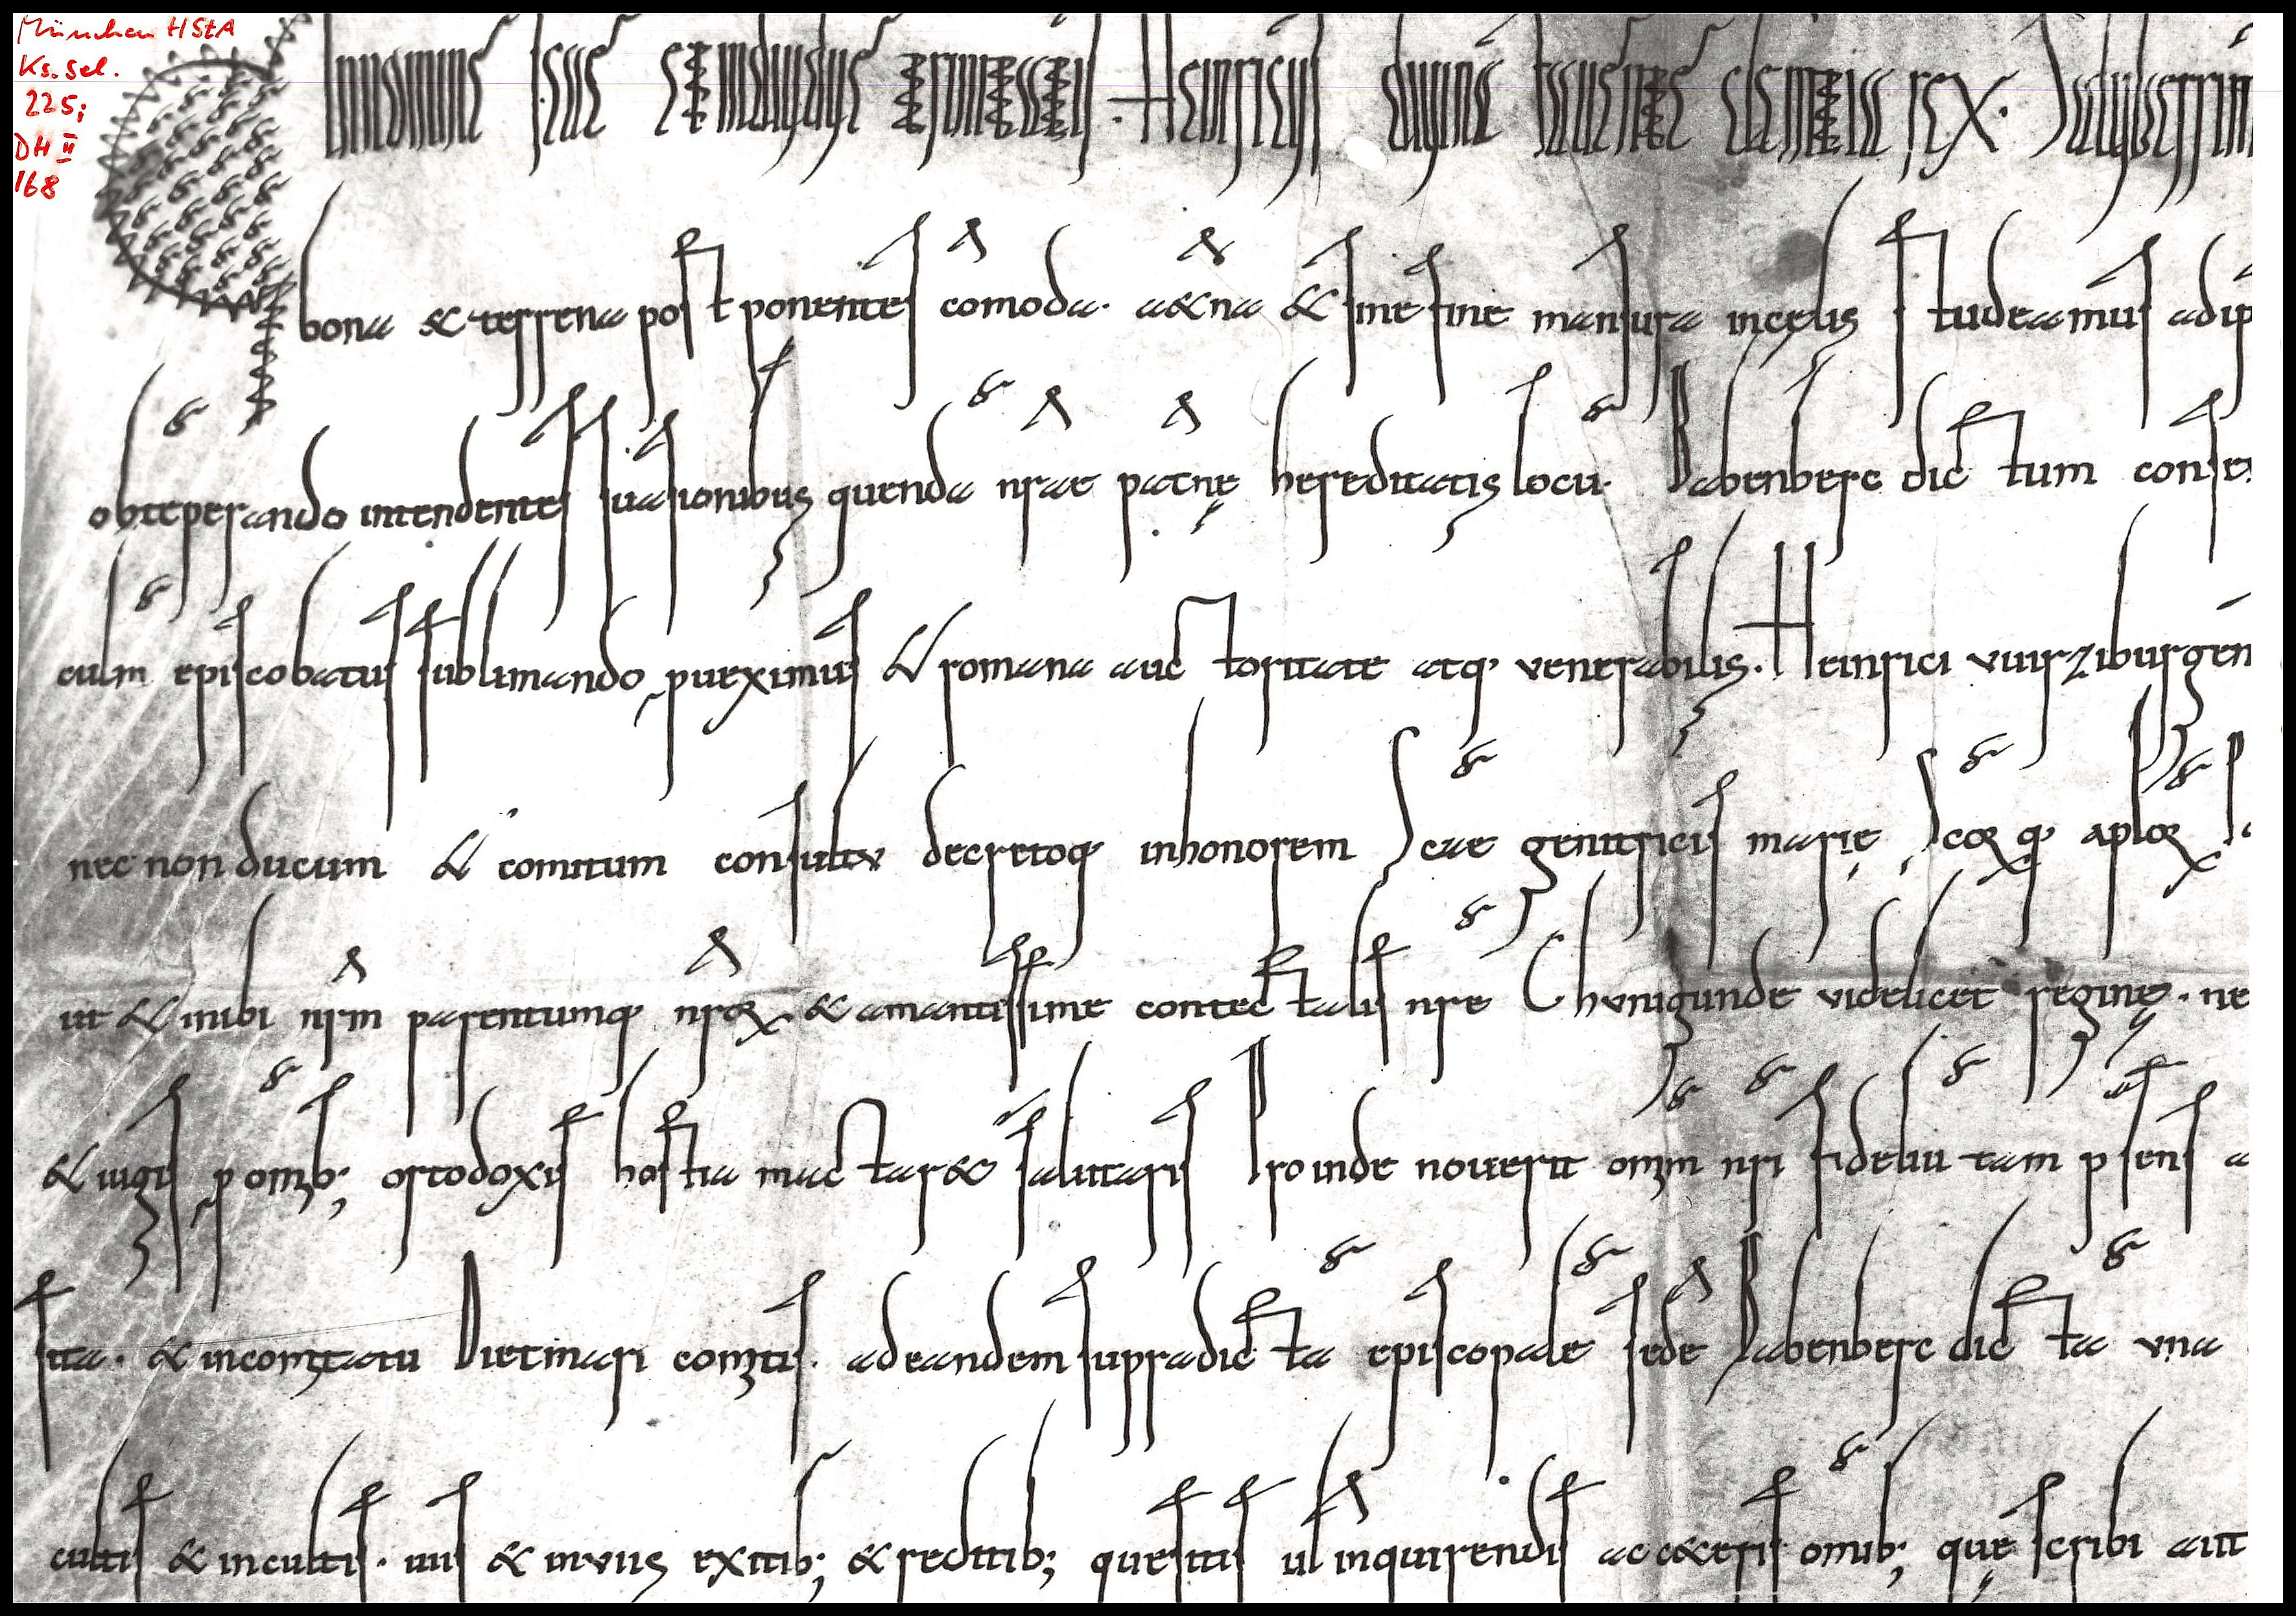 München HStA
Ks. sel.
225;
DH II
168
In nomine sanctae et individuae trinitatis. Heinricus divina favente clementia rex. Saluberrim
bona et terrena postponentes comoda· aeterna et sine fine mansura in cęlis studeamus adip
obteperando intendentes suasionibus quendā nr̄ae patnę hereditatis locū· Babenberc dictum
culm episcobatus sublimando pueximus et romana auctoritate atq; venerabilis· Heinrici vuirziburgen
nec non ducum et comitum consultv decretoq; in honorem Sc̄ae genitricis marię, sc̄oꝝ q; ap̄loꝝ
ut et inibi nr̄m parentumq; nr̄oꝝ· et amantissime contectalis nr̄e Chvnigunde videlicet reginę· ne
et iugis p om̄ib; ortodoxis hostia mactaret salutaris Proinde noverit om̄m nr̄i fideliū tam p̄sens
sita· et in comitatu Dietmari comitis· ad eandem supradictā episcopalē sedē Babenberc dictā vna
cultis et incultis· uiis et inviis exitib; et reditib; quesitis ul̄ inquirendis ac ceteris om̄ib; quę scribi aut